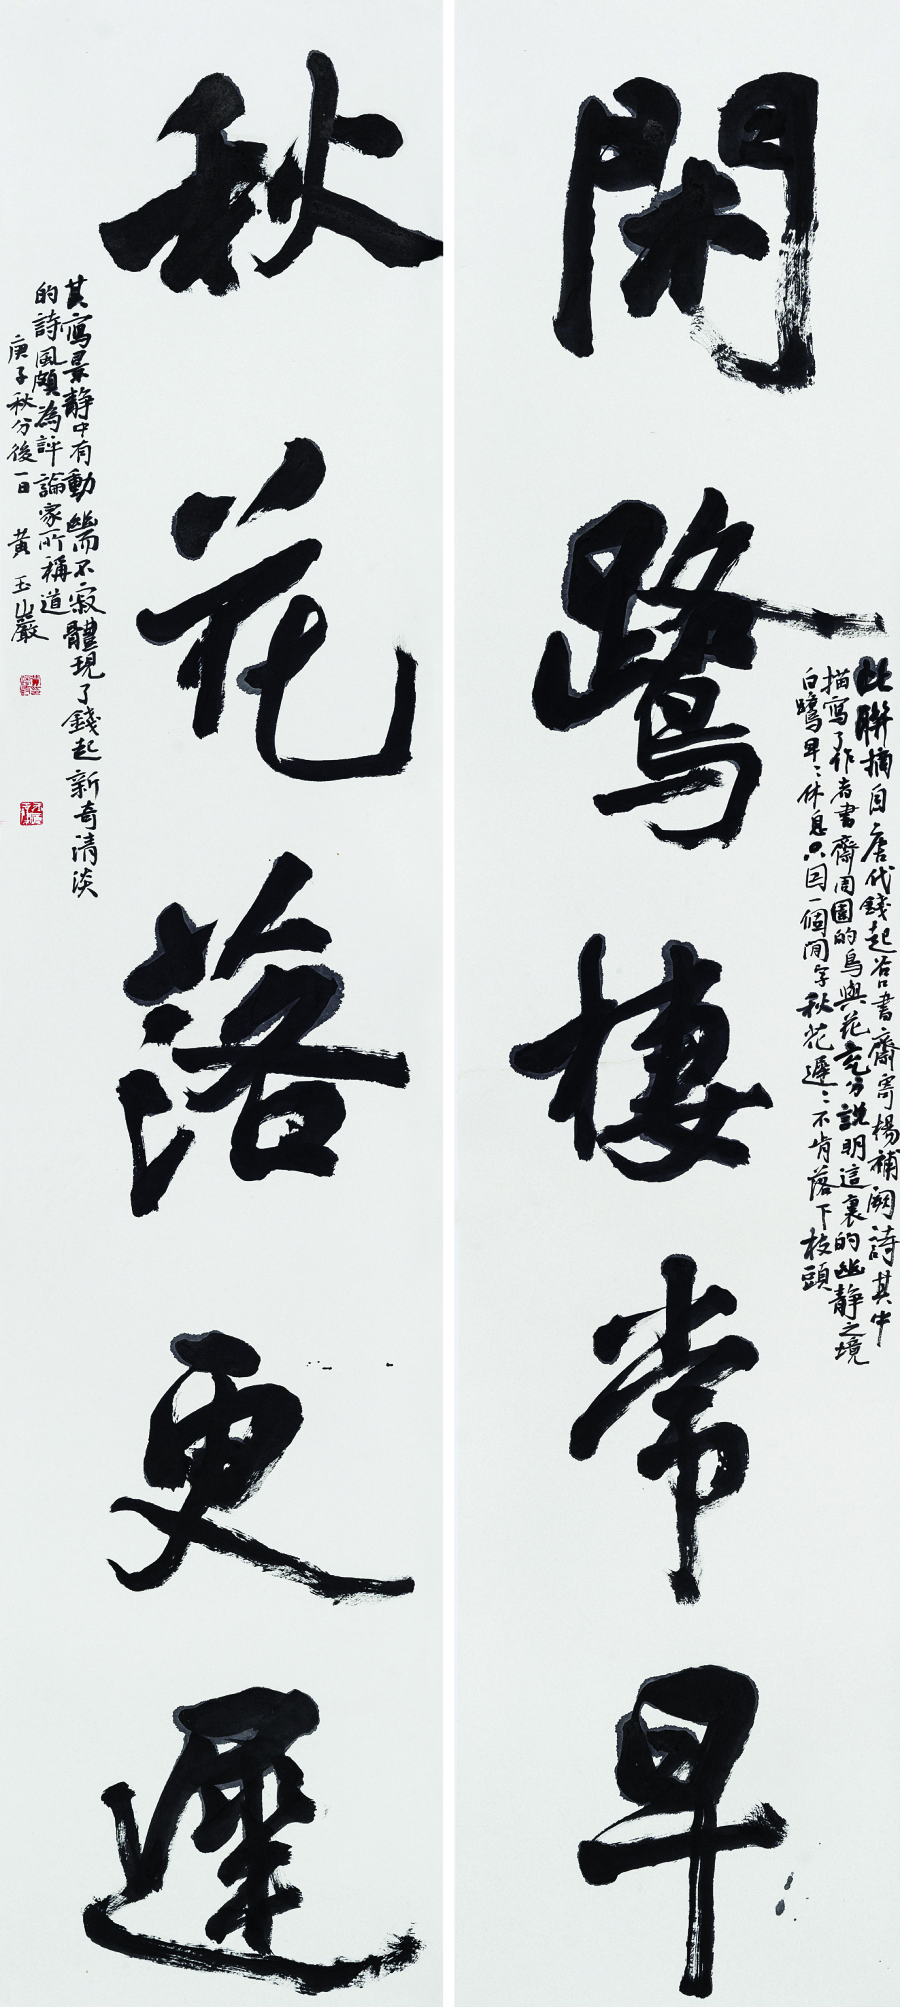 閑鷺棲常早
此聯摘自唐代錢起谷口書齋寄楊補闕詩其中
描寫了作者書齋周圍的鳥與花充分說明這裏的幽静之境
白鷺早〻休息只因一個閒字秋花遲〻不肯落下枝頭
秋花落更遲
其寫景静中有動幽而不寂體現了錢起新奇清淡
的詩風頗為評論家所稱道
庚子秋分後一日 黄玉巖